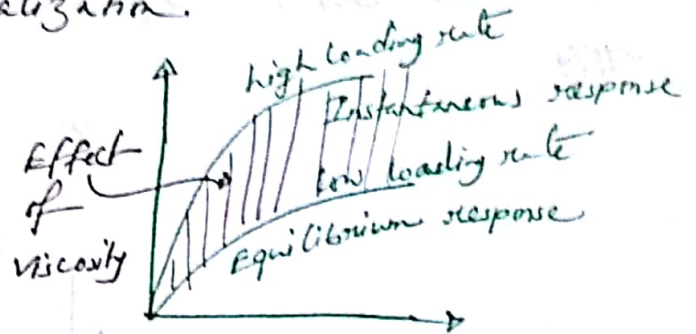 high loading rate
Instantaneous response
Effect
of
viscosity
low loading rate
Equilibrium response